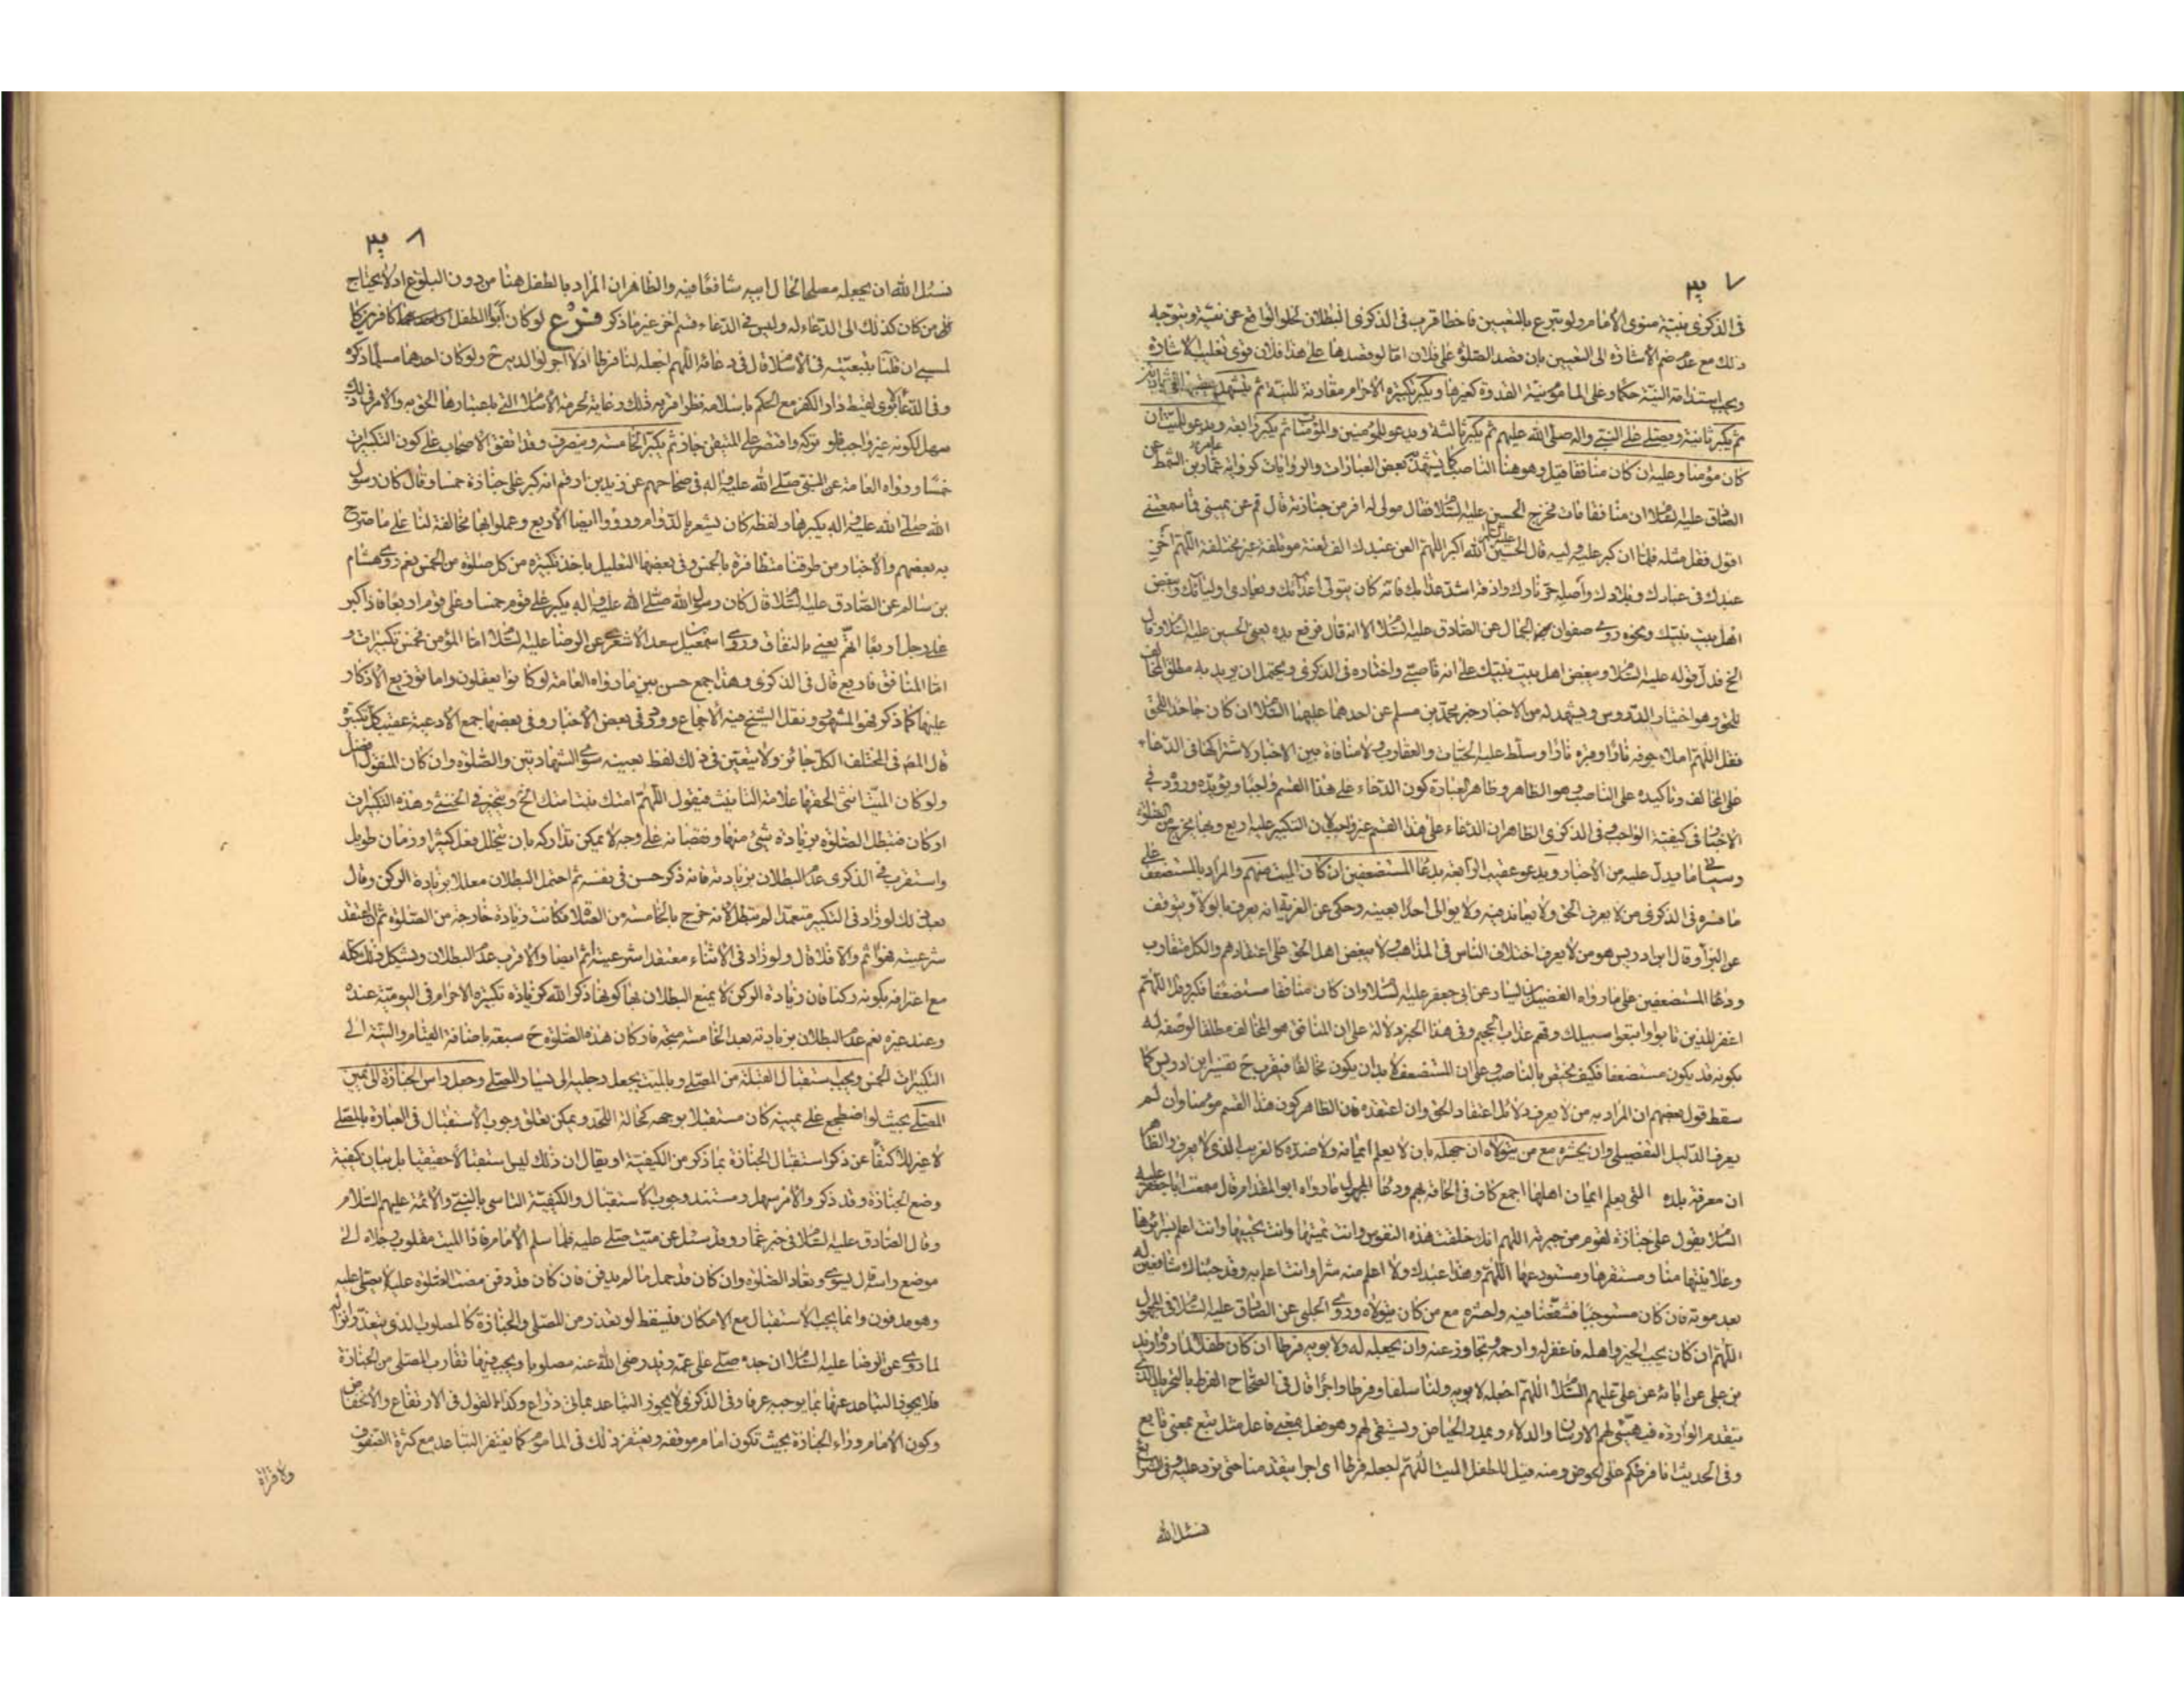 ٧
في الذكرى بنية منوى الإمام ولو تبرع بالتعيين فاخطا قرب في الذكرى البطلان لخلو الواقع عن نيته ويتوجه
ذلك مع عدم ضم الاشارة الى التعيين بان قصد الصلوة على فلان امّا لو قصدها على هذا فلان قوى تغليب الاشارة
ويجب استدامة النية حكما وعلى الماموم نية القدوة كغيرها ويكبر تكبيرة الاحرام مقارنة للنية ثم يتشهد
ثم يكبر ثانية ويصلي على النبي واله صلى الله عليهم ثم يكبر ثالثة ويدعو للمؤمنين والمؤمنات ثم يكبر رابعة ويدعو للميت ان
كان مؤمنا وعليه ان كان منافقا قيل وهو هنا الناصب كما يشهد به بعض العبارات والروايات كرواية عامر بن السمط عن
الصادق عليه السلام ان منافقا مات فخرج الحسين عليه السلام فقال مولى له افر من جنازته قال قم عن يميني فما سمعتني
اقول فقل مثله فلما ان كبر عليه وليه قال الحسين عليه السلام الله اكبر اللهم العن عبدك الف لعنة موتلفة غير مختلفة اللهم اخز
عبدك في عبادك وبلادك واصله حر نارك واذقه اشد عذابك فانه كان يتولى اعدائك ويعادى اوليائك ويبغض
اهل بيت نبيك ونحوه روى صفوان الجمال عن الصادق عليه السلام الا انه قال فرفع يده يعني الحسين عليه السلام وقال
الخ فدل قوله عليه السلام ويبغض اهل بيت نبيك على انه ناصبي واختاره في الذكرى ويحتمل ان يريد به مطلق المخالف
للحق وهو اختيار الدروس ويشهد له من الاخبار خبر محمد بن مسلم عن احدهما عليهما السلام ان كان جاحدا للحق
فقل اللهم املا جوفه نارا وقبره نارا وسلط عليه الحيات والعقارب ولا منافاة بين الاخبار لاشتراكها في الدعاء
على المخالف وتاكيده على الناصب وهو الظاهر وظاهر العبارة كون الدعاء على هذا القسم واجبا ويؤيده وروده في
الاخبار في كيفية الواجب وفي الذكرى الظاهر ان الدعاء على هذا القسم غير واجب لان التكبير عليه اربع وبها يخرج من الصلوة
وسياتي ما يدل عليه من الاخبار ويدعو عقيب الرابعة بدعاء المستضعفين ان كان الميت منهم والمراد بالمستضعف على
ما فسره في الذكرى من لا يعرف الحق ولا يعاند فيه ولا يوالى احدا بعينه وحكى عن الغرية انه يعرف بالولاء ويتوقف
عن البراء وقال ابن ادريس هو من لا يعرف اختلاف الناس في المذاهب ولا يبغض اهل الحق على اعتقادهم والكل متقارب
ودعاء المستضعفين على ما رواه الفضيل بن يسار عن ابي جعفر عليه السلام وان كان منافقا مستضعفا فكبر وقل اللهم
اغفر للذين تابوا واتبعوا سبيلك وقهم عذاب الجحيم وفي هذا الخبر دلالة على ان المنافق هو المخالف مطلقا لوصفه له
بكونه قد يكون مستضعفا فكيف يختص بالناصب وعلى ان المستضعف لا بد ان يكون مخالفا فيقرب ح تفسير ابن ادريس كما
سقط قول بعضهم ان المراد به من لا يعرف دلائل اعتقاد الحق وان اعتقده فان الظاهر كون هذا القسم مؤمنا وان لم
يعرف الدليل التفصيلي وان يحشره مع من يتولاه ان جهله بان لا يعلم ايمانه ولا ضده كالغريب الذي لا يعرف والظاهر
ان معرفة بلده التي يعلم ايمان اهلها اجمع كاف في الحاقه بهم ودعاء المجهول ما رواه ابو المقدام قال سمعت ابا جعفر عليه
السلام يقول على جنازة لقوم من جيرته اللهم انك خلقت هذه النفوس وانت تميتها وانت تحييها وانت اعلم بسرائرها
وعلانيتها منا ومستقرها ومستودعها اللهم وهذا عبدك ولا اعلم منه شرا وانت اعلم به وقد جئناك شافعين له
بعد موته فان كان مستوجبا فشفعنا فيه واحشره مع من كان يتولاه وروى الحلبي عن الصادق عليه السلام في المجهول
اللهم ان كان يحب الخير واهله فاغفر له وارحمه وتجاوز عنه وان يجعله له ولابويه فرطا ان كان طفلا لما رواه زيد
بن علي عن ابائه عن علي عليهم السلام اللهم اجعله لابويه ولنا سلفا وفرطا واجرا قال في الصحاح الفرط بالتحريك الذي
يتقدم الواردة فيهيئ لهم الارسان والدلاء ويمدر الحياض ويستقي لهم وهو فعل بمعنى فاعل مثل تبع بمعنى تابع
وفي الحديث انا فرطكم على الحوض ومنه قيل للطفل الميت اللهم اجعله فرطا اي اجرا يتقدمنا حتى نرد عليه وفي
نسئل الله
٨
نسئل الله ان يجعله مصلحا لحال ابيه شافعا فيه والظاهر ان المراد بالطفل هنا من دون البلوغ اذ لا يحتاج
من كان كذلك الى الدعاء له وليس في الدعاء قسم اخر غير ما ذكر فرع لو كان ابوا الطفل
ان قلنا بتبعيته في الاسلام قال في دعائه اللهم اجعله لنا فرطا اذ لا اجر لوالديه ح ولو كان احدهما مسلما ذكره
وفي الدعاء لقيط دار الكفر مع الحكم باسلامه نظرا
سهل لكونه غير واجب فلو تركه واقتصر على المتيقن جاز ثم يكبر الخامسة وينصرف وقد اتفق الاصحاب على كون التكبيرات
خمسا ورواه العامة عن النبي صلى الله عليه واله في صحاحهم عن زيد بن ارقم انه كبر على جنازة خمسا وقال كان رسول
الله صلى الله عليه واله يكبرها ولفظه كان يشعر بالدوام ورووا ايضا الاربع وعملوا بها مخالفة لنا على ما صرح
به بعضهم والاخبار من طرقنا متظافرة بالخمس وفي بعضها التعليل باخذ تكبيرة من كل صلوة من الخمس نعم روى هشام
بن سالم عن الصادق عليه السلام قال كان رسول الله صلى الله عليه واله يكبر على قوم خمسا وعلى قوم اربعا فاذا كبر
على رجل اربعا اتهم يعني بالنفاق وروى اسمعيل بن سعد الاشعري عن الرضا عليه السلام امّا المؤمن فخمس تكبيرات و
امّا المنافق فاربع قال في الذكرى وهذا جمع حسن بين ما رواه العامة لو كانوا يعقلون واما توزيع الاذكار
عليها كما ذكر فهو المشهور ونقل الشيخ فيه الاجماع وورد في بعض الاخبار وفي بعضها جمع الادعية عقيب كل تكبيرة
قال المصر في المختلف الكل جائز ولا يتعين في ذلك لفظ بعينه سوى الشهادتين والصلوة وان كان المنقول افضل
ولو كان الميت انثى الحقها علامة التانيث فيقول اللهم امتك بنت امتك الخ ويتخير في الخنثى وهذه التكبيرات
اركان فتبطل الصلوة بزيادة شئ منها ونقصانه على وجه لا يمكن تداركه بان يتخلل فعل كثير او زمان طويل
واستقرب في الذكرى عدم البطلان بزيادته فانه ذكر حسن في نفسه ثم احتمل البطلان معللا بزيادة الركن وقال
بعد ذلك لو زاد في التكبير متعمدا لم تبطل لانه خرج بالخامسة من الصلوة فكانت زيادة خارجة من الصلوة ثم ان اعتقد
شرعيته فهو اثم والا فلا قال ولو زاد في الاثناء معتقدا شرعيته اثم ايضا والاقرب عدم البطلان ويشكل ذلك كله
مع اعترافه بكونه ركنا فان زيادة الركن لا يمنع البطلان بها كونها ذكر الله كزيادة تكبيرة الاحرام في اليومية عنده
وعند غيره نعم عدم البطلان بزيادته بعد الخامسة متجه فاركان هذه الصلوة ح سبعة باضافة القيام والنية الى
التكبيرات الخمس ويجب استقبال القبلة من المصلي وبالميت يجعل رجليه الى يسار المصلي وجعل راس الجنازة الى يمين
المصلي بحيث لو اضطجع على يمينه كان مستقبلا بوجهه كحالة اللحد ويمكن تعلق وجوب الاستقبال في العبارة بالمصلي
لا غير اكتفاء عن ذكر استقبال الجنازة بما ذكر من الكيفية او يقال ان ذلك ليس استقبالا حقيقيا بل بيان كيفية
وضع الجنازة وقد ذكر والامر سهل ومستند وجوب الاستقبال والكيفية التاسي بالنبي والائمة عليهم السلام
وقال الصادق عليه السلام في خبر عمار وقد سئل عن ميت صلي عليه فلما سلم الامام فاذا الميت مقلوب رجلاه الى
موضع راسه قال يسوى وتعاد الصلوة وان كان قد حمل ما لم يدفن فان كان قد دفن مضت الصلوة عليه لا يصلى عليه
وهو مدفون وانما يجب الاستقبال مع الامكان فيسقط لو تعذر من المصلي والجنازة كالمصلوب الذي يتعذر انزاله
لما روى عن الرضا عليه السلام ان جده صلى على عمه زيد رضي الله عنه مصلوبا ويجب فيها تقارب المصلي من الجنازة
فلا يجوز التباعد عنها بما يوجبه عرفا وفي الذكرى لا يجوز التباعد بمائتي ذراع وكذا القول في الارتفاع والانخفاض
وكون الامام وراء الجنازة بحيث تكون امام موقفه ويغتفر ذلك في الماموم كما يغتفر التباعد مع كثرة الصفوف
ولا قراءة